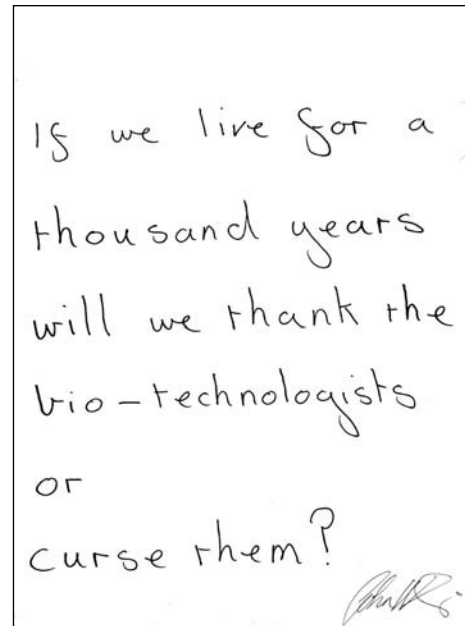 If we live for a
thousand years
will we thank the
bio-technologists
or
curse them?